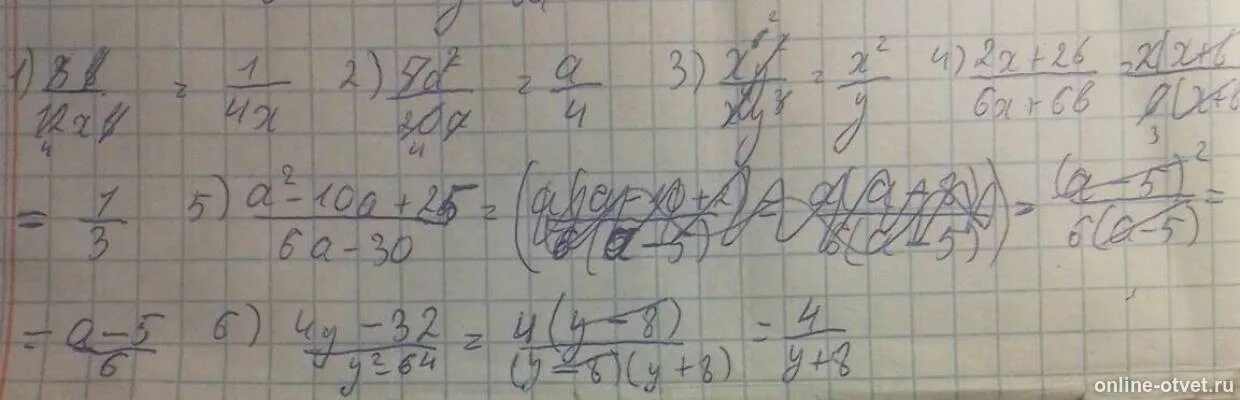 1) 3b/12xb = 1/4x 2) 5a²/20a = a/4 3) x⁶y²/x⁴y³ = x²/y 4) 2x+2b/6x+6b = 2(x+b/6(x+b
= 1/3 5) a²-10a+25/6a-30 = (a-5)²/6(a-5) =
= a-5/6 6) 4y-32/y²-64 = 4(y-8)/(y-8)(y+8) = 4/y+8
online-otvet.ru